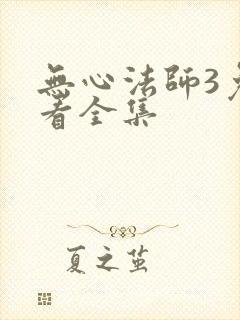 無心法師3
看全集
夏之茧